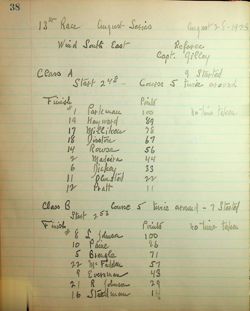 38
13th Race August Series August 28-1925
Wind South East Referee
Capt. Gilley
Class A 9 Started
Start 2 48 - Course 5 twice around
Finish Points no time taken
1 Parkman 100
19 Hayward 89
17 Milliken 78
18 Disston 67
14 Rowan 56
2 Madeira 44
6 Dickey 33
11 Olmsted 22
12 Pratt 11
Class B Course 5 twice around - 7 Started
Start 2 53
Finish Points no time taken
8 S Johnson 100
10 Paine 86
5 71
22 McFadden 57
9 Eversman 43
21 R Johnson 29
16 Steedman 14